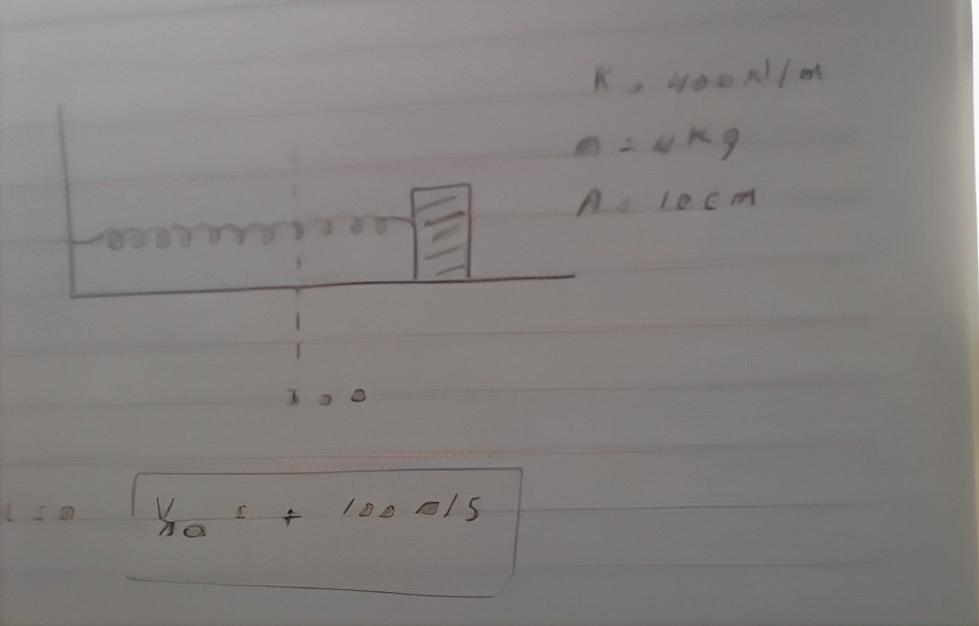 K = 400 N/m
m = 4 Kg
A = 10 cm
x = 0
t = 0 Vx0 = + 100 m/s